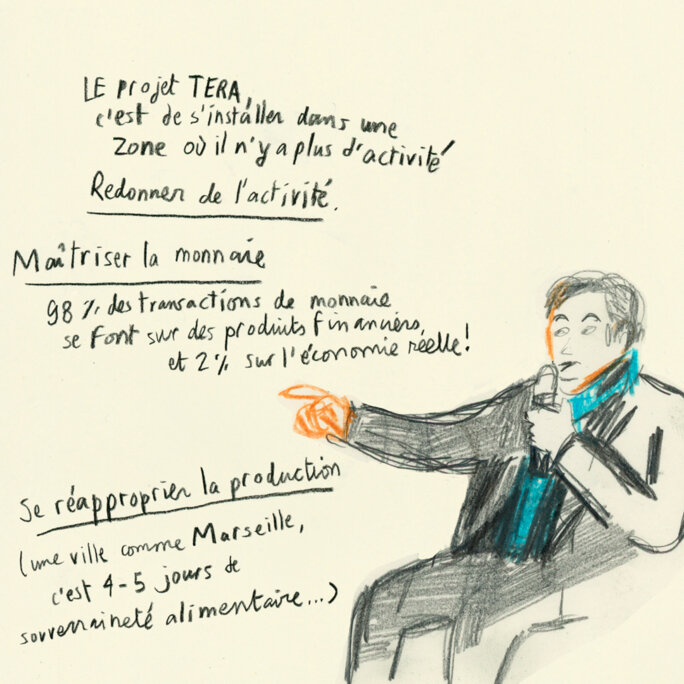 LE projet TERA,
c'est de s'installer dans une
zone où il n'y a plus d'activité
Redonner de l'activité.
Maîtriser la monnaie
98 % des transactions de monnaie
se font sur des produits financiers,
et 2 % sur l'économie réelle !
Se réapproprier la production
(une ville comme Marseille,
c'est 4-5 jours de
souveraineté alimentaire...)